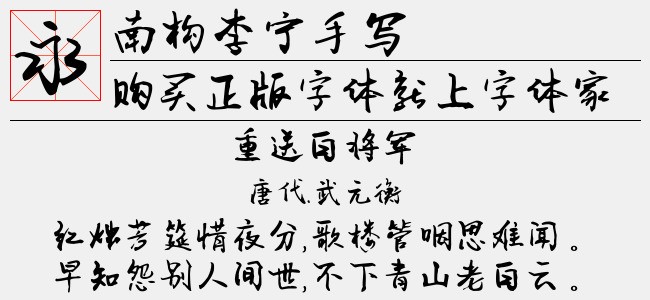 永
南构李宁手写
购买正版字体就上字体家
重送白将军
唐代.武元衡
红烛芳筵惜夜分,歌楼管咽思难闻。
早知怨别人间世,不下青山老白云。